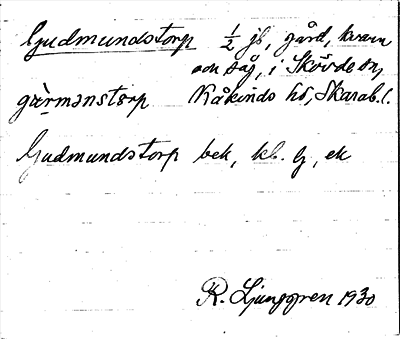 Gudmundstorp ½ jb, gård, kvarn
och såg, i Skövde sn,
gùrmənstɔrp Kåkinds hd, Skarab. l.
Gudmundstorp bek, kl. G, ek
R. Ljunggren 1930